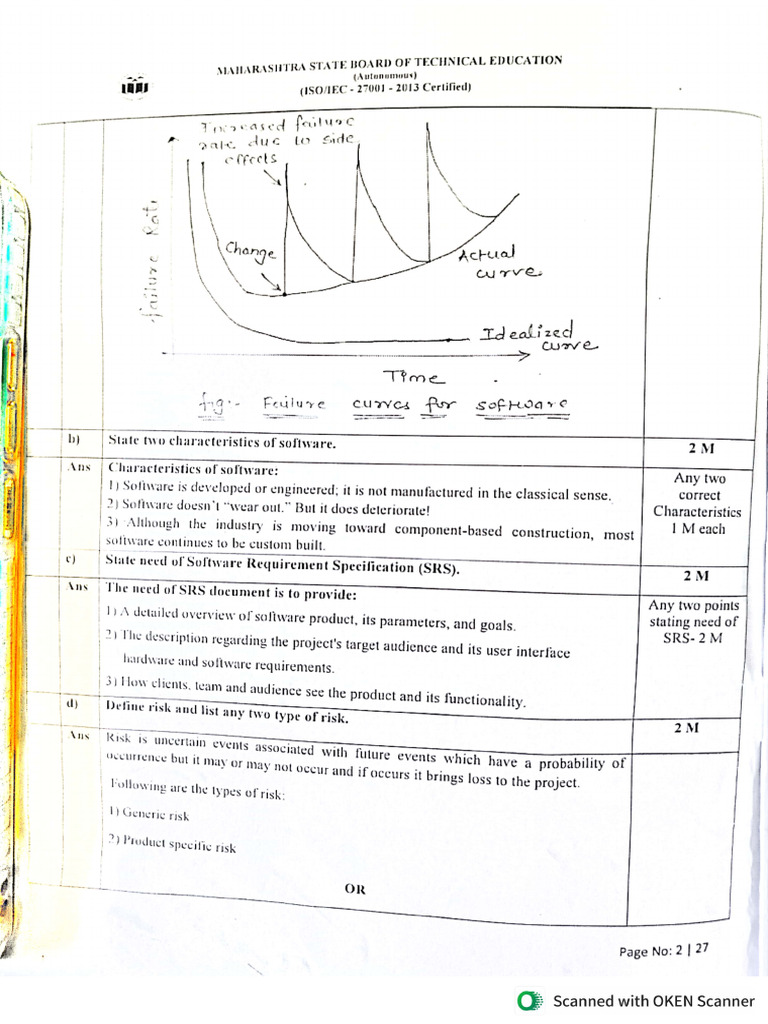 MAHARASHTRA STATE BOARD OF TECHNICAL EDUCATION
(Autonomous)
(ISO/IEC - 27001 - 2013 Certified)
Increased failure
rate due to side
effects
Failure Rate
Change
Actual
curve
Idealized
curve
Time
fig:- Failure curves for software
b) State two characteristics of software. 2 M
Ans Characteristics of software:
1) Software is developed or engineered; it is not manufactured in the classical sense.
2) Software doesn't "wear out." But it does deteriorate!
3) Although the industry is moving toward component-based construction, most
software continues to be custom built.
Any two
correct
Characteristics
1 M each
c) State need of Software Requirement Specification (SRS). 2 M
Ans The need of SRS document is to provide:
1) A detailed overview of software product, its parameters, and goals.
2) The description regarding the project's target audience and its user interface
hardware and software requirements.
3) How clients, team and audience see the product and its functionality.
Any two points
stating need of
SRS- 2 M
d) Define risk and list any two type of risk. 2 M
Ans Risk is uncertain events associated with future events which have a probability of
occurrence but it may or may not occur and if occurs it brings loss to the project.
Following are the types of risk:
1) Generic risk
2) Product specific risk
OR
Page No: 2 | 27
Scanned with OKEN Scanner